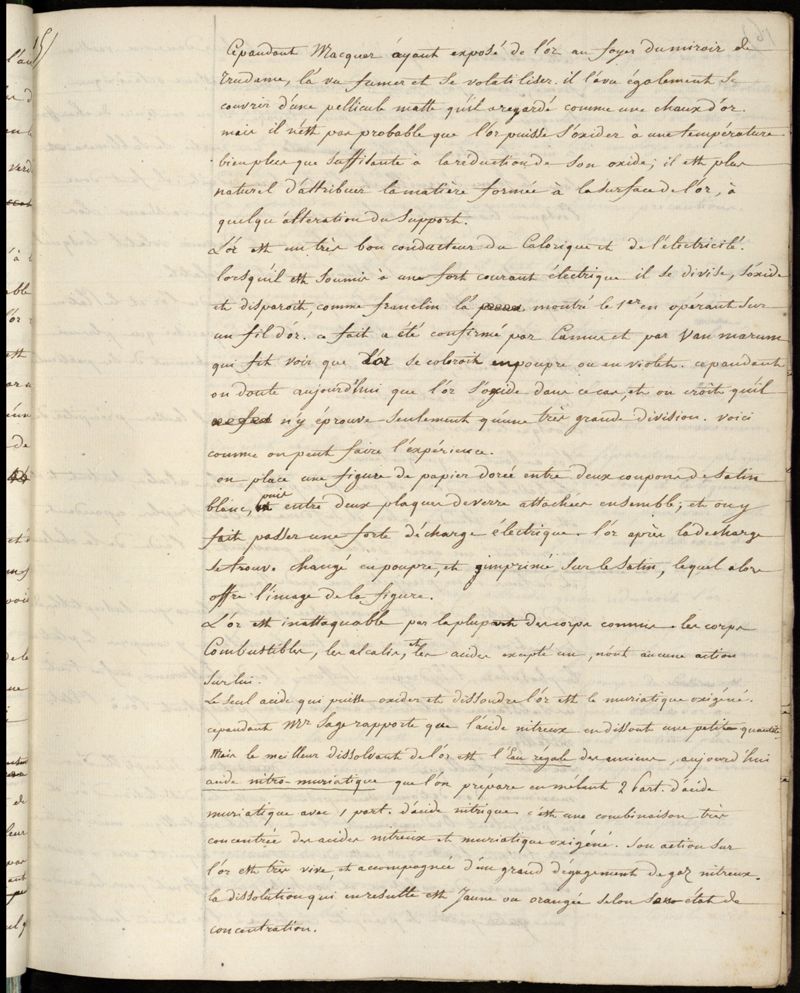 15/
Cepandant Macquer áyant exposé de l'or au foyer du miroir de
Trudaine, l'a vu fumer et se volatiliser. il l'a vu également se
couvrir d'une pellicule matte qu'il a regardé comme une chaux d'or.
mais il n'est pas probable que l'or puisse s'oxider à une température
bien plus que suffisante a la reduction de son oxide; il est plus
naturel d'attribuer la matière formée à la surface de l'or, à
quelqu'alteration du support.
L'or est un très bon conducteur du Calorique et de l'électricité.
lorsqu'il est soumis à un fort courant électrique il se divise, s'oxide
et disparoit, comme franclin l'a montré le 1er en opérant sur
un fil d'or. ce fait a été confirmé par Camus et par Van marum
qui fit voir que l'or se coloroit en poupre ou en violet. cepandant
on doute aujourd'hui que l'or s'oxide dans ce cas, et on croit qu'il
n'y éprouve seulement qu'une très grande division. voici
comme on peut faire l'expérience.
on place une figure de papier dorée entre deux coupons de satin
blanc, puis entre deux plaques de verre attachées ensemble; et on y
fait passer une forte décharge électrique. l'or après la decharge
se trouve changé en poupre, et imprimé sur le satin, lequel alors
offre l'image de la figure.
L'or est inattaquable par la plupart des corps comme les corps
Combustibles, les alcalis, et les acides excepté un, n'ont aucune action
sur lui.
Le seul acide qui puisse oxider et dissoudre l'or est le muriatique oxigéné.
cepandant Mr Sage rapporte que l'acide nitreux en dissout une petite quantité
Mais le meilleur dissolvant de l'or est l'Eau régale des anciens, aujourd'hui
acide nitro-muriatique que l'on prépare en mêlant 2 part. d'acide
muriatique avec 1 part. d'acide nitrique c'est une combinaison très
concentrée des acides nitreux et muriatique oxigéné. Son action sur
l'or est très vive, et accompagnée d'un grand dégagement de gaz nitreux.
la dissolution qui en resulte est Jaune ou orangée selon son état de
concentration.